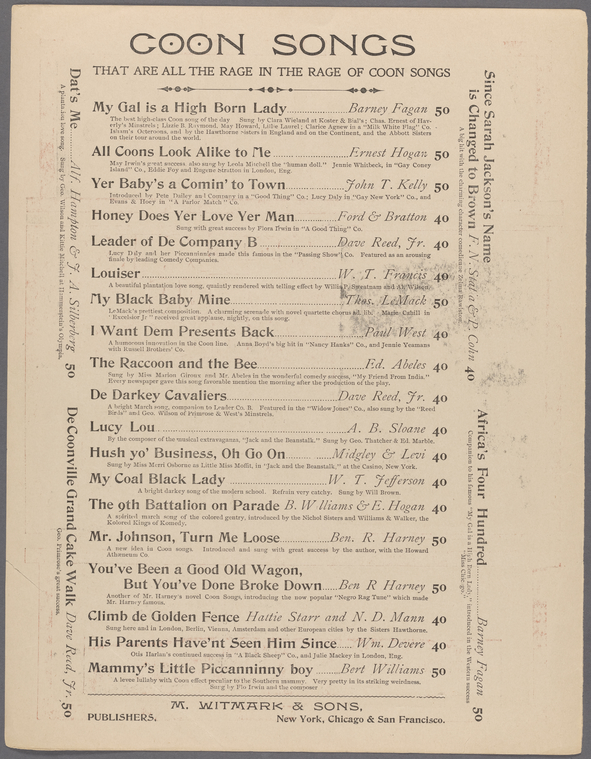 COON SONGS
THAT ARE ALL THE RAGE IN THE RAGE OF COON SONGS
My Gal is a High Born Lady.....Barney Fagan 50
The best high-class Coon song of the day Sung by Clara Wieland at Koster & Bial's; Chas. Ernest of Hav-
erly's Minstrels; Lizzie B. Raymond, May Howard, Lillie Laurel; Clarice Agnew in a "Milk White Flag" Co.
Isham's Octoroons, and by the Hawthorne sisters in England and on the Continent, and the Abbott Sisters
on their tour around the world.
All Coons Look Alike to Me.....Ernest Hogan 50
May Irwin's great success, also sung by Leola Mitchell the "human doll." Jennie Whitbeck, in "Gay Coney
Island" Co., Eddie Foy and Eugene Stratton in London, Eng.
Yer Baby's a Comin' to Town.....John T. Kelly 50
Introduced by Pete Dailey and Company in a "Good Thing" Co.; Lucy Daly in "Gay New York" Co., and
Evans & Hoey in "A Parlor Match" Co.
Honey Does Yer Love Yer Man.....Ford & Bratton 40
Sung with great success by Flora Irwin in "A Good Thing" Co.
Leader of De Company B.....Dave Reed, Jr. 40
Lucy Daly and her Piccanninies made this famous in the "Passing Show" Co. Featured as an arousing
finale by leading Comedy Companies.
Louiser.....W. T. Francis 40
A beautiful plantation love song, quaintly rendered with telling effect by Willis P. Sweatnam and Al. Wilson.
My Black Baby Mine.....Thos. LeMack 50
LeMack's prettiest composition. A charming serenade with novel quartette chorus ad. lib. Marie Cahill in
"Excelsior Jr" received great applause, nightly, on this song.
I Want Dem Presents Back.....Paul West 40
A humorous innovation in the Coon line. Anna Boyd's big hit in "Nancy Hanks" Co., and Jennie Yeamans
with Russell Brothers' Co.
The Raccoon and the Bee.....Ed. Abeles 40
Sung by Miss Marion Giroux and Mr. Abeles in the wonderful comedy success, "My Friend From India."
Every newspaper gave this song favorable mention the morning after the production of the play.
De Darkey Cavaliers.....Dave Reed, Jr. 40
A bright March song, companion to Leader Co. B. Featured in the "Widow Jones" Co., also sung by the "Reed
Birds" and Geo. Wilson of Primrose & West's Minstrels.
Lucy Lou.....A. B. Sloane 40
By the composer of the musical extravaganza, "Jack and the Beanstalk." Sung by Geo. Thatcher & Ed. Marble.
Hush yo' Business, Oh Go On.....Midgley & Levi 40
Sung by Miss Merri Osborne as Little Miss Moffit, in "Jack and the Beanstalk," at the Casino, New York.
My Coal Black Lady.....W. T. Jefferson 40
A bright darkey song of the modern school. Refrain very catchy. Sung by Will Brown.
The 9th Battalion on Parade B. Williams & E. Hogan 40
A spirited march song of the colored gentry, introduced by the Nichol Sisters and Williams & Walker, the
Kolored Kings of Komedy.
Mr. Johnson, Turn Me Loose.....Ben. R. Harney 50
A new idea in Coon songs. Introduced and sung with great success by the author, with the Howard
Athenæum Co.
You've Been a Good Old Wagon,
But You've Done Broke Down.....Ben R Harney 50
Another of Mr. Harney's novel Coon Songs, introducing the now popular "Negro Rag Time" which made
Mr. Harney famous.
Climb de Golden Fence Hattie Starr and N. D. Mann 40
Sung here and in London, Berlin, Vienna, Amsterdam and other European cities by the Sisters Hawthorne.
His Parents Have'nt Seen Him Since.....Wm. Devere 40
Otis Harlan's continued success in "A Black Sheep" Co., and Julie Mackey in London, Eng.
Mammy's Little Piccanninny boy.....Bert Williams 50
A levee lullaby with Coon effect peculiar to the Southern mammy. Very pretty in its striking weirdness.
Sung by Flo Irwin and the composer
M. WITMARK & SONS,
PUBLISHERS, New York, Chicago & San Francisco.
Dat's Me.....Alf. Hampton & J. A. Silberberg 50
A plantation love song. Sung by Geo. Wilson and Kittie Mitchell at Hammerstein's Olympia.
De Coonville Grand Cake Walk Dave Reed, Jr. 50
Geo. Primrose's great success.
Since Sarah Jackson's Name
is Changed to Brown
Cohn 40
A big hit with the charming character comedienne
Africa's Four Hundred.....Barney Fagan 50
Companion to his famous "My Gal is a High Born Lady," introduced in the Western success